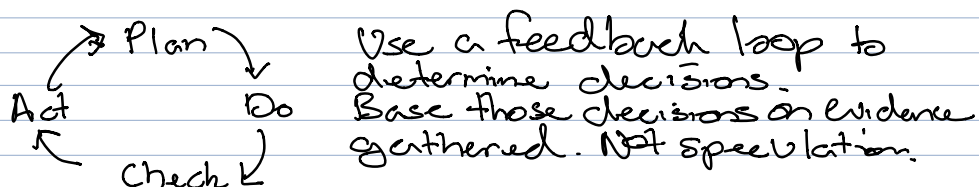 Plan
Do
Check
Act
Use a feedback loop to
determine decisions.
Base those decisions on evidence
gathered. Not speculation.